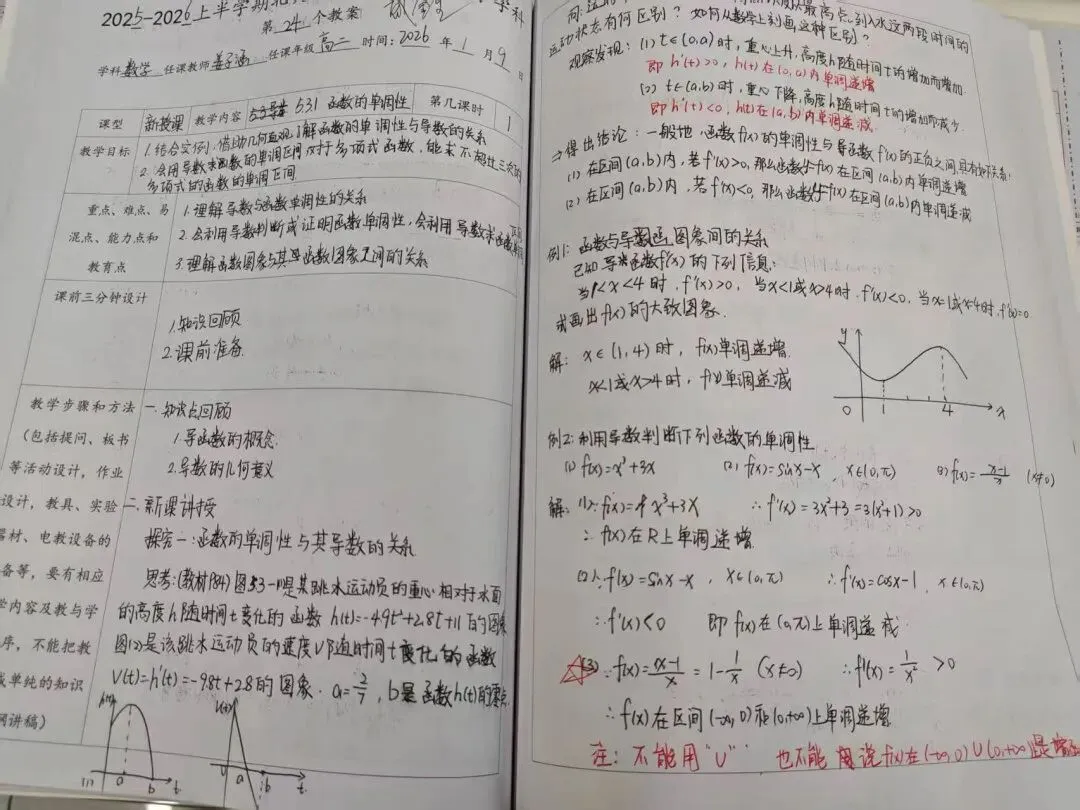 2025-2026上半学期
学科
第 24 个教案
学科 数学 任课教师 任课年级 高二 时间：2026 年 1 月 9 日
课型 新授课 教学内容 5.3.1 函数的单调性 第几课时 1
教学目标
1.结合实例，借助几何直观了解函数的单调性与导数的关系
2.会用导数求函数的单调区间，对于多项式函数，能求不超过三次的
多项式的函数的单调区间
重点、难点、易
混点、能力点和
教育点
1.理解导数与函数单调性的关系
2.会利用导数判断或证明函数单调性，会利用导数求函数
3.理解函数图象与其导函数图象之间的关系
课前三分钟设计
1.知识回顾
2.课前准备
教学步骤和方法
（包括提问、板书
等活动设计，作业
设计，教具、实验
器材、电教设备的
备等，要有相应
学内容及教与学
序，不能把教
成单纯的知识
网讲稿）
一、知识点回顾
1.导函数的概念
2.导数的几何意义
二、新课讲授
探究一：函数的单调性与其导数的关系
思考：(教材P84)图5.3-1是某跳水运动员的重心相对于水面
的高度h随时间t变化的函数 h(t)=-4.9t²+2.8t+11的图象
图(2)是该跳水运动员的速度v随时间t变化的函数
v(t)=h'(t)=-9.8t+2.8的图象. a=2/7，b是函数h(t)的零点
h(t)
(1) a b t
v(t)
0 a b t
最高点，到入水这两段时间的
运动状态有何区别？如何从数学上刻画这种区别？
观察发现：(1) t∈(0,a)时，重心上升，高度h随时间t的增加而增加.
即 h'(t)>0，h(t)在(0,a)内单调递增
(2) t∈(a,b)时，重心下降，高度h随时间t的增加而减少.
即h'(t)<0，h(t)在(a,b)内单调递减.
⇒得出结论：一般地，函数f(x)的单调性与导函数f'(x)的正负之间具有如下关系：
(1) 在区间(a,b)内，若f'(x)>0，那么函数y=f(x)在区间(a,b)内单调递增
(2) 在区间(a,b)内，若f'(x)<0，那么函数y=f(x)在区间(a,b)内单调递减
例1：函数与导函数图象间的关系
已知导函数f'(x)的下列信息：
当1<x<4时，f'(x)>0，当x<1或x>4时，f'(x)<0，当x=1或x=4时，f'(x)=0
试画出f(x)的大致图象.
解：x∈(1,4)时，f(x)单调递增.
x<1或x>4时，f(x)单调递减
y
0 1 4 x
例2：利用导数判断下列函数的单调性
(1) f(x)=x³+3x (2) f(x)=sinx-x，x∈(0,π) (3) f(x)=(x-1)/x (x≠0)
解：(1)∵f(x)=x³+3x ∴f'(x)=3x²+3=3(x²+1)>0
∴f(x)在R上单调递增.
(2)∵f(x)=sinx-x，x∈(0,π) ∴f'(x)=cosx-1，x∈(0,π)
∴f'(x)<0 即f(x)在(0,π)上单调递减.
(3)∵f(x)=(x-1)/x=1-1/x (x≠0) ∴f'(x)=1/x²>0
∴f(x)在区间(-∞,0)和(0,+∞)上单调递增
注：不能用“∪” 也不能说f(x)在(-∞,0)∪(0,+∞)是增函